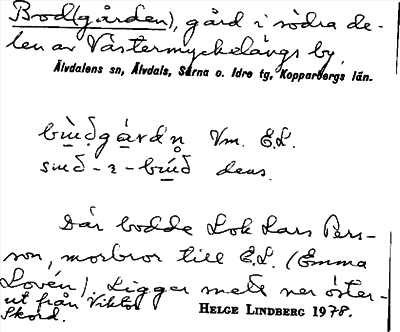 Bod(gården), gård i södra de-
len av Västermyckelängs by.
Älvdalens sn, Älvdals, Särna o. Idre tg, Kopparbergs län.
Vm. E.L.
dens.
Där bodde Lok Lars Pers-
son, morbror till E.L. (Emma
Lovén). Ligger mera ner öster-
ut från Viktor
Skord.
HELGE LINDBERG 1978.